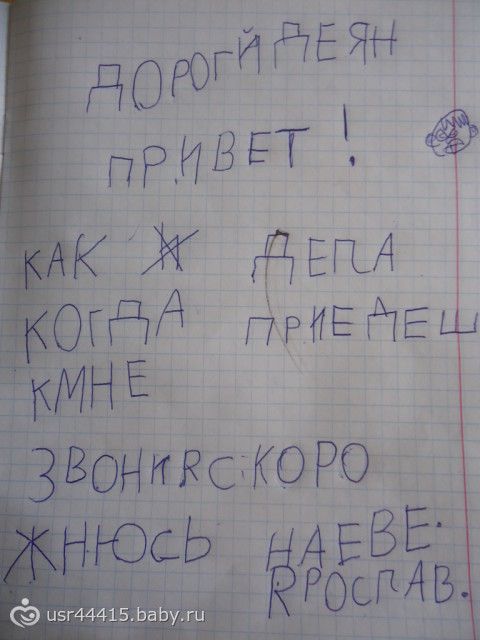 ДОРОГЙ ДЕЯН
ПРИВЕТ !
КАК ДЕПА
КОГДА ПРИЕДЕШ
КМНЕ
ЗВОНИ Я СКОРО
ЖНЮСЬ НАЕВЕ.
ЯРОСПАВ.
usr44415.baby.ru